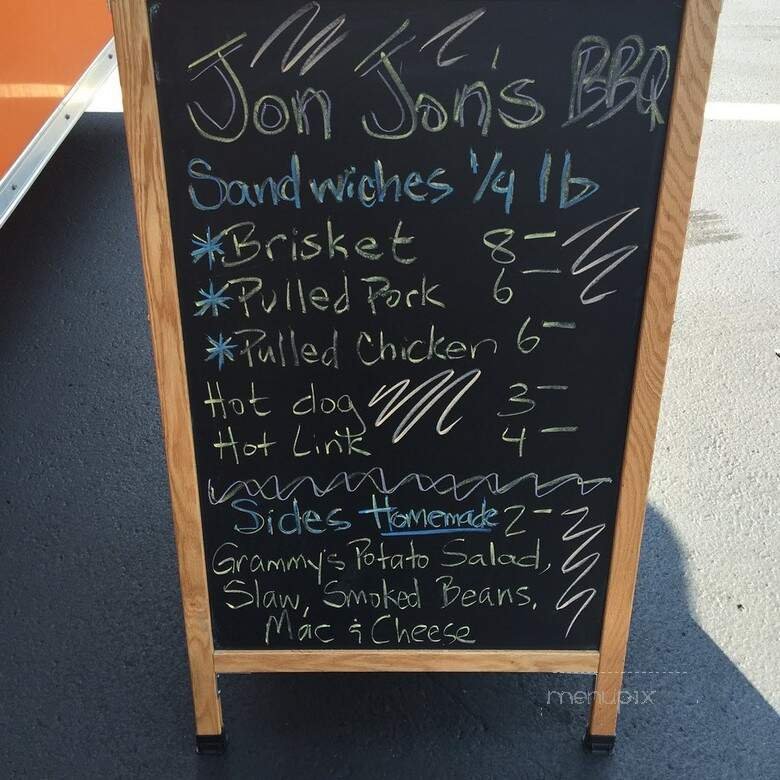 Jon Jon's BBQ
Sandwiches 1/4 lb
*Brisket 8-
*Pulled Pork 6-
*Pulled Chicken 6-
Hot dog 3-
Hot Link 4-
Sides Homemade 2-
Grammy's Potato Salad,
Slaw, Smoked Beans,
Mac & Cheese
menupix